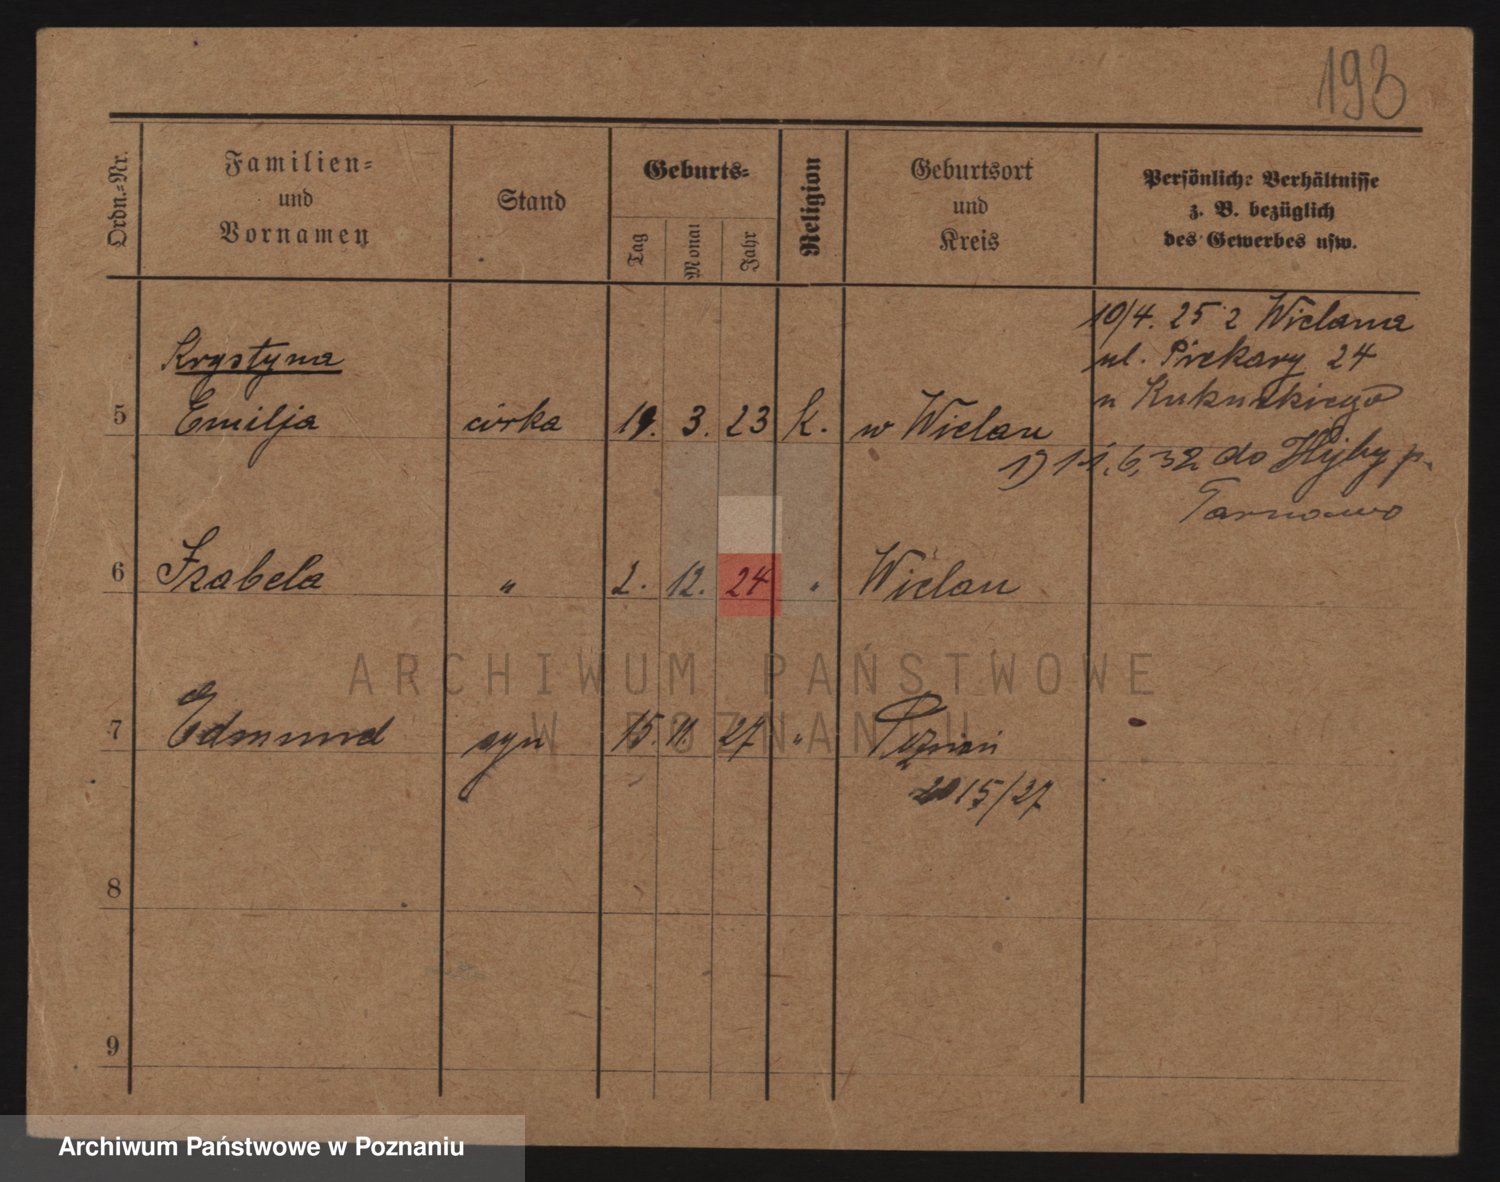 193
Ordn.=Nr.
Familien=
und
Vornamen
Stand
Geburts=
Tag
Monat
Jahr
Religion
Geburtsort
und
Kreis
Persönliche Verhältnisse
z. B. bezüglich
des Gewerbes usw.
10/4. 25 z Wielania
ul. Piekary 24
u
5 Krystyna
Emilja córka 19. 3. 23 K. w Wielan
1) 11.6.32 do p.
Tarnowo
6 Izabela " 2. 12. 24 " Wielan
ARCHIWUM PAŃSTWOWE
W POZNANIU
7 Edmund syn 15. 11. 27 " Poznań
2015/27
8
9
Archiwum Państwowe w Poznaniu